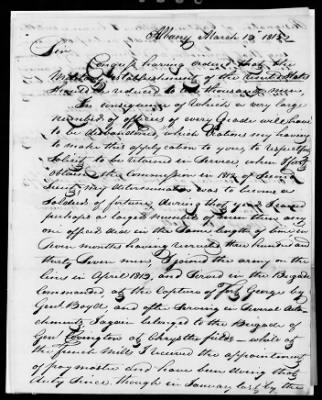 Albany March 13th 1815
Sir
Congress having ordered that the
Military establishment of the United States
should be reduced to ten thousand men,
In consequence of which a very large
number of officers of every Grade will have
to be disbanded, which reasons my having
to make this application to you, to respectfully
Solicit to be retained in Service, when I first
obtained the Commission in 1812 of Second
Lieut, my determination was to become a
Soldier of fortune, during that year I
perhaps a larger number of men than any
one officer did in the same length of time, in
Seven months having recruited three hundred and
thirty Seven men, I joined the army on the
lines in April 1813, and Served in the Brigade
Commanded at the Capture of Fort George by
Genl Boyd and after Serving in Several deta-
chments I again belonged to the Brigade of
Genl Covington at Chrystlers fields - while at
the French Mills I received the appointment
of paymaster and have been doing that
duty Since, though in January last by the